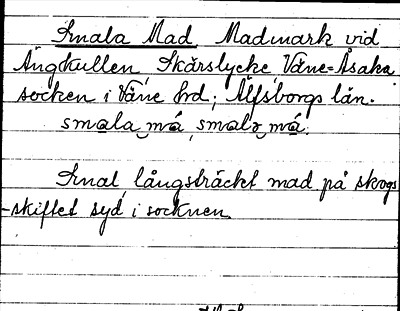 Smala Mad. Madmark vid
Ängkullen Skårslycke, Våne-Åsaka
socken i Våne hrd; Älfsborgs län.
smala må, smalə má.
Smal långsträckt mad på skogs
-skiftet syd i socknen